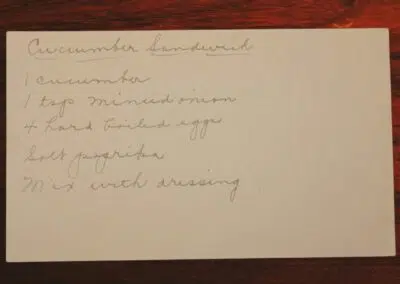 Cucumber Sandwich
1 cucumber
1 tsp minced onion
4 hard boiled eggs
Salt paprika
Mix with dressing